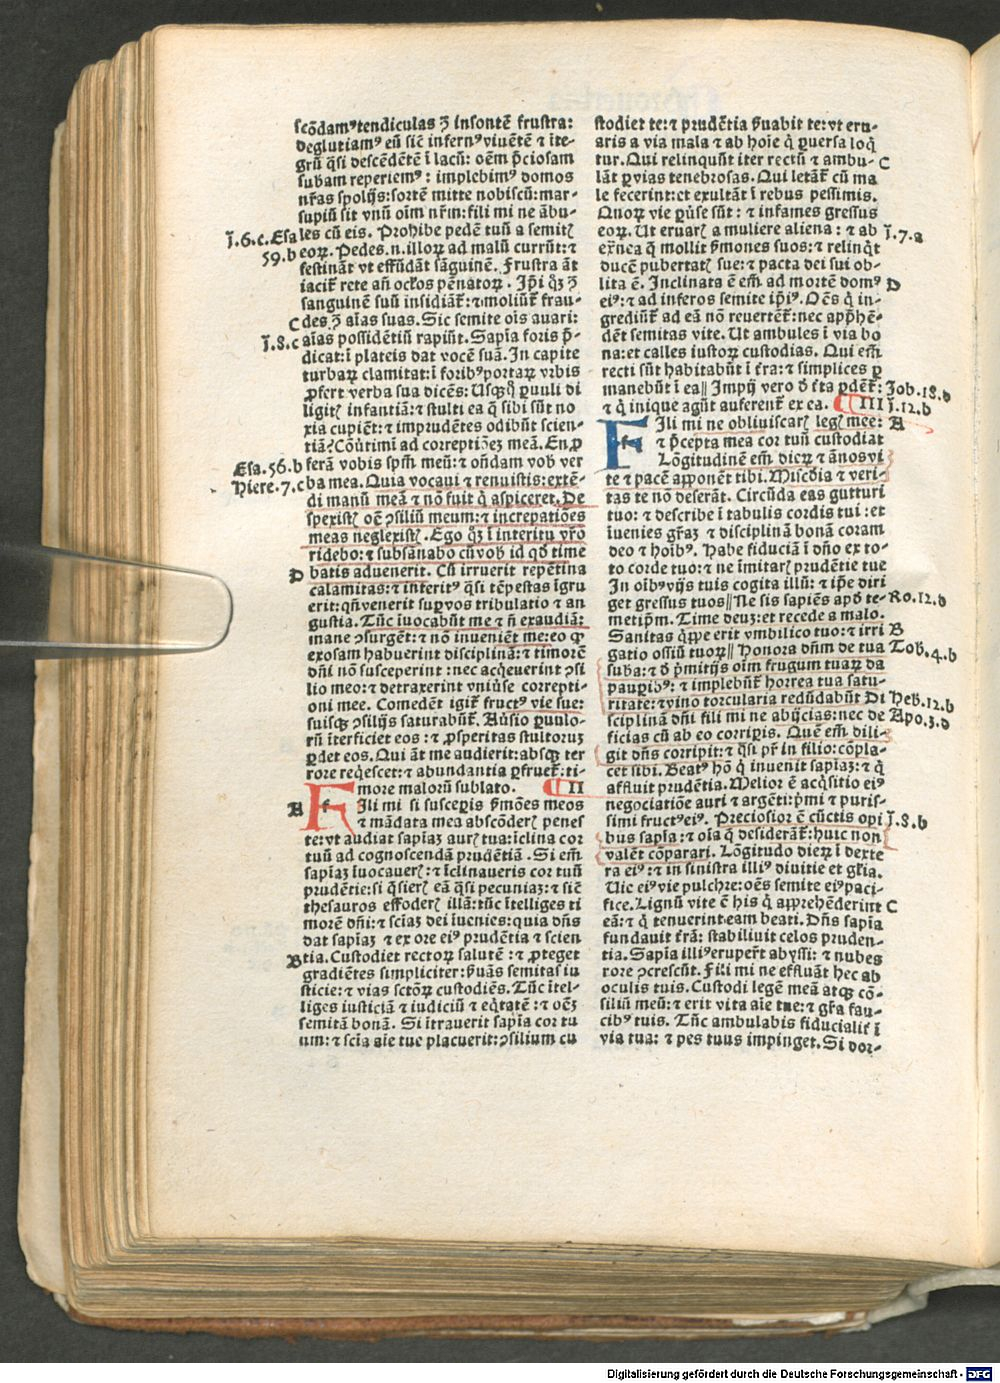 scōdam⁹ tendiculas ꝫ insontē frustra:
deglutiam⁹ eū sic̄ infern⁹ viuētē ⁊ īte-
grū q̄si descēdētē ī lacū: oēm p̄ciosam
subam reperiem⁹: implebim⁹ domos
nr̄as spolijs: sortē mitte nobiscū: mar-
supiū sit vnū oīm nr̄m: fili mi ne ābu-
J.6.c. Esa les cū eis. Prohibe pedē tuū a semitꝭ
59.b eoꝝ. Pedes.n.illoꝝ ad malū currūt: ⁊
festināt vt effūdāt sāguinē. Frustra āt
iacit̄ rete añ oc̄los pēnatoꝝ. Ip̄i qꝫ ꝫ
sanguinē suū insidiāt̄: ⁊ moliūt̄ frau-
C des ꝫ aīas suas. Sic semite oīs auari:
J.8.c aīas possidētiū rapiūt. Sapīa foris p̄-
dicat: ī plateis dat vocē suā. In capite
turbaꝝ clamitat: ī forib⁹ portaꝝ vrbis
ꝓfert verba sua dicēs: Usq̄qꝫ ꝑuuli di
ligitꝭ infantiā: ⁊ stulti ea q̄ sibi sūt no
xia cupiēt: ⁊ imprudētes odibūt scien-
tiā? Cōūtimi ad correptiōeꝫ meā. En ꝓ
Esa.56.b ferā vobis spm̄ meū: ⁊ on̄dam vob̄ ver
Hiere.7.c ba mea. Quia vocaui ⁊ renuistis: extē-
di manū meā ⁊ nō fuit q̄ aspiceret. De
spexistꝭ oē ꝯsiliū meum: ⁊ increpatiōes
meas neglexistꝭ. Ego qꝫ ī interitu vr̄o
ridebo: ⁊ subsānabo cū vob̄ id qd̄ time
D batis aduenerit. Cū irruerit repētina
calamitas: ⁊ interit⁹ q̄si tēpestas īgru
erit: qn̄ venerit suꝑ vos tribulatio ⁊ an
gustia. Tūc īuocabūt me ⁊ n̄ exaudiā:
mane ꝯsurgēt: ⁊ nō inueniēt me: eo ꝙ
exosam habuerint disciplinā: ⁊ timorē
dn̄i nō susceperint: nec acq̄euerint ꝯsi
lio meo: ⁊ detraxerint vniūse correpti-
oni mee. Comedēt igit̄ fruct⁹ vie sue:
suisqꝫ ꝯsilijs saturabūt̄. Aūsio ꝑuulo-
rū īterficiet eos: ⁊ ꝓsperitas stultoruꝫ
ꝑdet eos. Qui āt me audierit: absqꝫ ter
rore req̄escet: ⁊ abundantia ꝑfruet̄: ti-
more maloru sublato. II
A Fili mi si susceperis ẜmōes meos
⁊ mādata mea abscōderꝭ penes
te: vt audiat sapīaꝫ aurꝭ tua: īclina cor
tuū ad cognoscendā prudētiā. Si em̄
sapīaꝫ īuocauerꝭ: ⁊ īclinaueris cor tuū
prudētie: si q̄sierꝭ eā q̄si pecuniaꝫ: ⁊ sic̄
thesauros effoderꝭ illā: tūc ītelliges ti
morē dn̄i: ⁊ sciāꝫ dei īuenies: quia dn̄s
dat sapīaꝫ ⁊ ex ore ei⁹ prudētia ⁊ scien
B tia. Custodiet rectoꝝ salutē: ⁊ ꝓteget
gradiētes simpliciter: ẜuās semitas iu
sticie: ⁊ vias sctōꝝ custodiēs. Tūc ītel-
liges iusticiā ⁊ iudiciū ⁊ eq̄tatē: ⁊ oēꝫ
semitā bonā. Si ītrauerit sapīa cor tu
um: ⁊ scīa aīe tue placuerit: ꝯsilium cu
stodiet te: ⁊ prudētia ẜuabit te: vt eru-
aris a via mala ⁊ ab hoīe q̄ ꝑuersa loq̄
tur. Qui relinquūt iter rectū ⁊ ambu- C
lāt ꝑ vias tenebrosas. Qui letāt̄ cū ma
le fecerint: et exultāt ī rebus pessimis.
Quoꝝ vie ꝑūse sūt: ⁊ infames gressus
eoꝝ. Ut eruarꝭ a muliere aliena: ⁊ ab J.7.a
ext̄nea q̄ mollit ẜmones suos: ⁊ relinq̄t
ducē pubertatꝭ sue: ⁊ pacta dei sui ob-
lita ē. Inclinata ē em̄ ad mortē dom⁹ D
ei⁹: ⁊ ad inferos semite ip̄i⁹. Oēs q̄ in-
grediūt̄ ad eā nō reuertēt̄: nec app̄hē-
dēt semitas vite. Ut ambules ī via bo
na: et calles iustoꝝ custodias. Qui em̄
recti sūt habitabūt ī t̄ra: ⁊ simplices ꝑ
manebūt ī ea || Impij vero ꝺ t̄ra ꝑdent̄: Job.18.d
⁊ q̄ inique agūt auferent̄ ex ea. III J.12.b
Fili mi ne obliuiscarꝭ legꝭ mee: A
⁊ p̄cepta mea cor tuū custodiat
Lōgitudinē em̄ dieꝝ ⁊ ānos vi
te ⁊ pacē apponēt tibi. Miscd̄ia ⁊ veri-
tas te nō deserāt. Circūda eas gutturi
tuo: ⁊ describe ī tabulis cordis tui: et
īuenies gr̄aꝫ ⁊ disciplinā bonā coram
deo ⁊ hoīb⁹. Habe fiduciā ī dn̄o ex to-
to corde tuo: ⁊ ne īmitarꝭ prudētie tue
In oīb⁹ vijs tuis cogita illū: ⁊ ip̄e diri
get gressus tuos || Ne sis sapiēs apd̄ te- Ro.12.d
metip̄m. Time deuꝫ: et recede a malo.
Sanitas q̄ppe erit vmbilico tuo: ⁊ irri B
gatio ossiū tuoꝝ || Honora dn̄m de tua Tob.4.b
suba: ⁊ ꝺ p̄mitijs oīm frugum tuaꝝ da
paupib⁹: ⁊ implebūt̄ horrea tua satu-
ritate: ⁊ vino torcularia redūdabūt Di Heb.12.b
sciplinā dn̄i fili mi ne abijcias: nec de Apo.3.d
ficias cū ab eo corriperis. Quē em̄ dili-
git dn̄s corripit: ⁊ q̄si pr̄ in filio: cōpla-
cet sibi. Beat⁹ hō q̄ inuenit sapīaꝫ: ⁊ q̄
affluit prudētia. Melior ē acq̄sitio ei⁹
negociatiōe auri ⁊ argēti: p̄mi ⁊ puris-
simi fruct⁹ ei⁹. Preciosior ē cūctis opi J.8.b
bus sapīa: ⁊ oīa q̄ desiderāt̄: huic non
valēt cōparari. Lōgitudo dieꝝ ī dexte
ra ei⁹: ⁊ in sinistra illi⁹ diuitie et gl̄ia.
Uie ei⁹ vie pulchre: oēs semite ei⁹ paci-
fice. Lignū vite ē his q̄ apprehēderint C
eā: ⁊ q̄ tenuerint eam beati. Dn̄s sapīa
fundauit t̄rā: stabiliuit celos pruden-
tia. Sapīa illi⁹ eruper̄t abyssi: ⁊ nubes
rore ꝯcrescūt. Fili mi ne effluāt hec ab
oculis tuis. Custodi legē meā atqꝫ cō-
siliū meū: ⁊ erit vita aīe tue: ⁊ gr̄a fau-
cib⁹ tuis. Tūc ambulabis fiducialit̄ ī
via tua: ⁊ pes tuus impinget. Si dor-
Digitalisierung gefördert durch die Deutsche Forschungsgemeinschaft - DFG